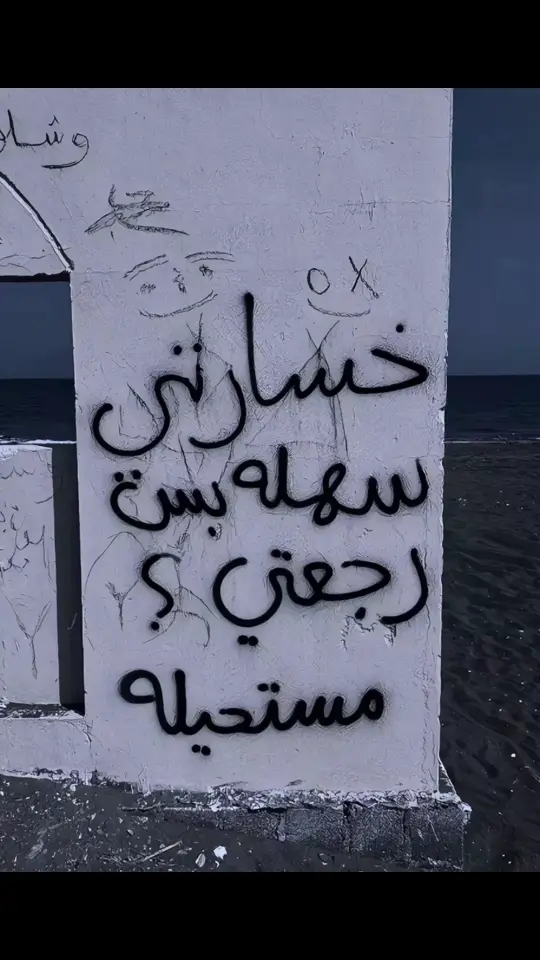 خسارتي
سهله بس
رجعتي ؟
مستحيله
O X